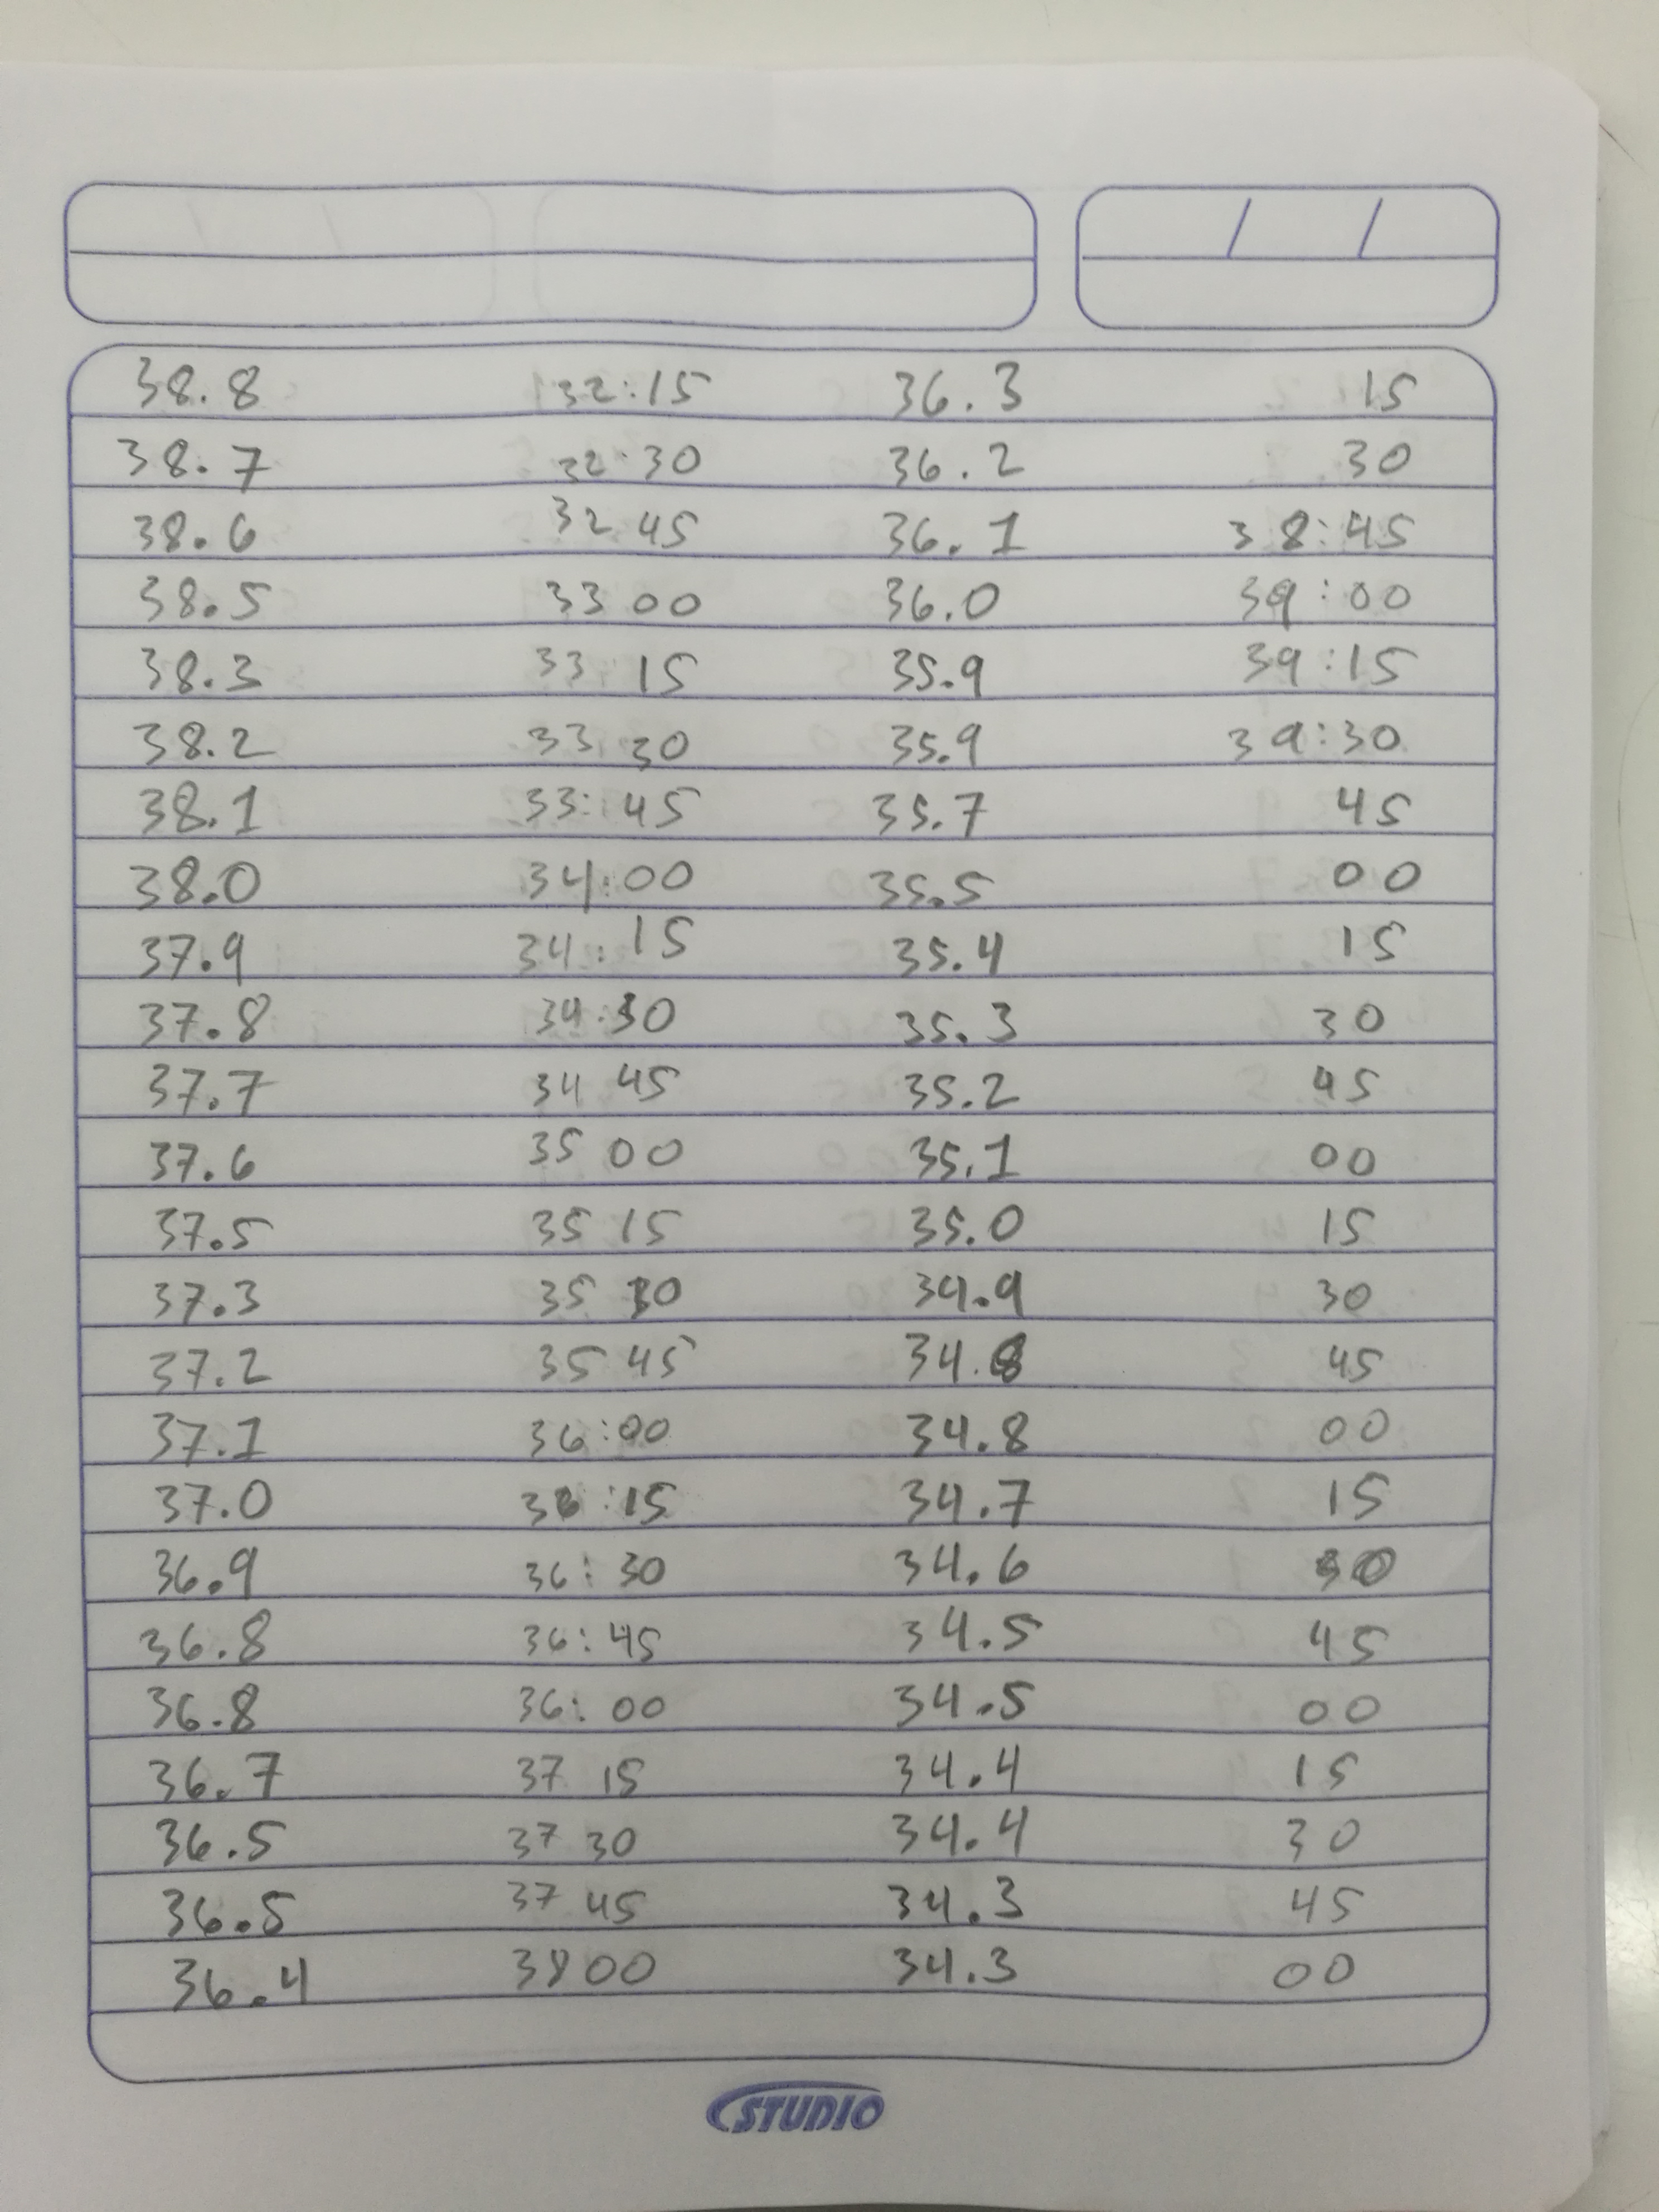 38.8 32:15 36.3 15
38.7 32:30 36.2 30
38.6 32 45 36.1 38:45
38.5 33 00 36.0 39:00
38.3 33 15 35.9 39:15
38.2 33 30 35.9 39:30
38.1 33:45 35.7 45
38.0 34:00 35.5 00
37.9 34:15 35.4 15
37.8 34:30 35.3 30
37.7 34 45 35.2 45
37.6 35 00 35.1 00
37.5 35 15 35.0 15
37.3 35 30 34.9 30
37.2 35 45 34.8 45
37.1 36:00 34.8 00
37.0 36:15 34.7 15
36.9 36:30 34.6 30
36.8 36:45 34.5 45
36.8 36:00 34.5 00
36.7 37 15 34.4 15
36.5 37 30 34.4 30
36.5 37 45 34.3 45
36.4 38 00 34.3 00
STUDIO